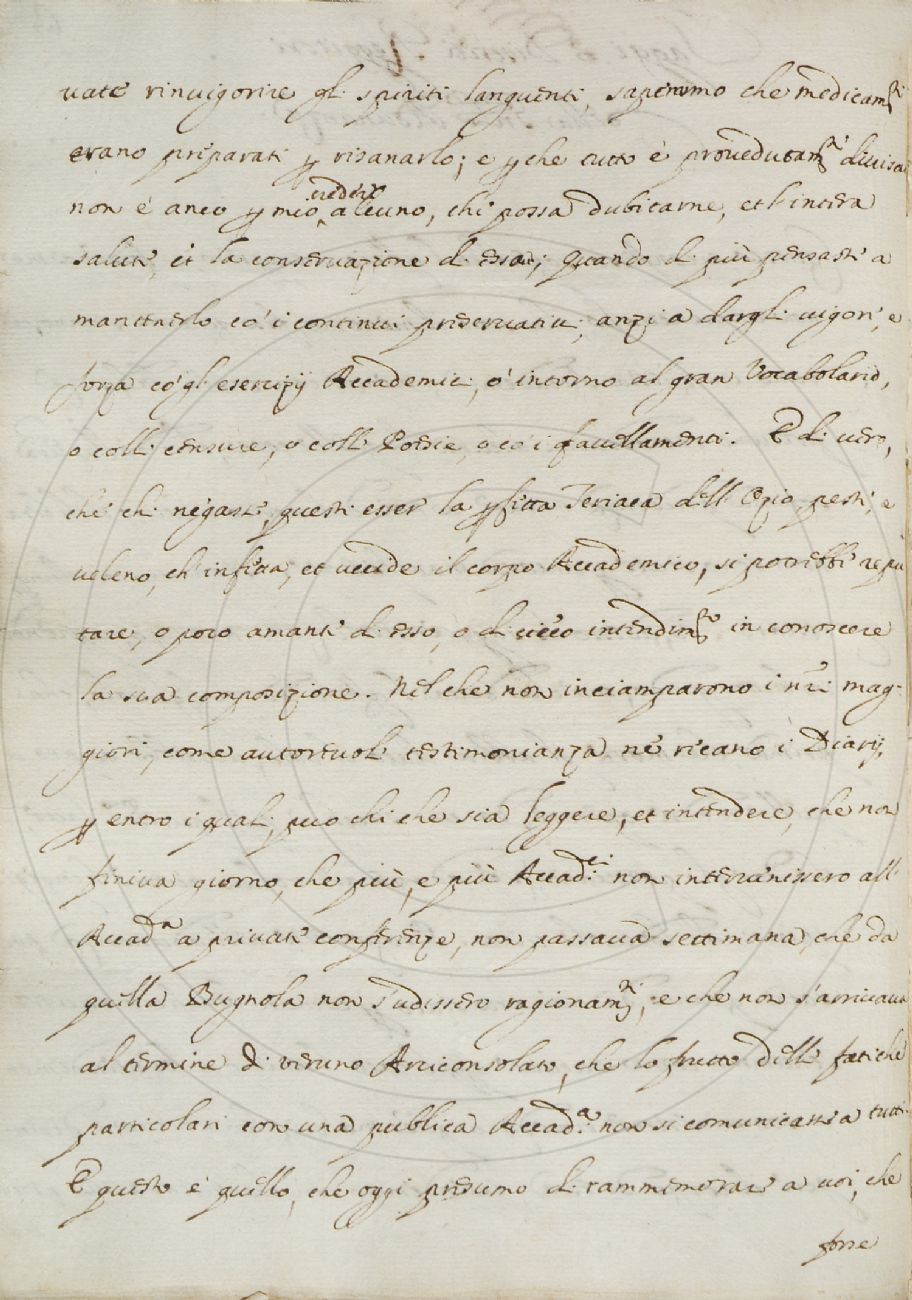 uate rinuigorire gl. spiriti languenti, sapeuamo che medicam.ti
erano preparati p risanarlo; e pche tutto è prouedutam.te diuisa
non è anco p mio credere alcuno, chi possa dubitarne, et l'intera
salute, et la conseruazione di esso; quando di più pensaste a
mantenerlo co' i continui preseruatiui, anzi a dargli uigore, e
forza co' gl. esercizij Accademici, o' intorno al gran Vocabolario,
o colle censure, o colle Poesie, o co' i fauellamenti. E di uero,
che chi negasse, questi esser la pfetta Teriaca dell' Ozio, peste, e
ueleno, ch' infetta, et uccide il corpo Accademico, si potrebbe repu
tare, o poco amante di esso, o di cieco intendim.to in conoscere
la sua composizione. Nel che non inciamparono i nri mag-
giori, come autoreuole testimonianza nè recano i Diarij,
p entro i quali può chi che sia leggere, et intendere, che non
finiua giorno, che più, e più Accad.ci non interuenissero all'
Accad.a a priuate conferenze, non passaua settimana, che da
quella Bugnola non s'udissero ragionam.ti, e che non s'arriuaua
al termine di ueruno Arciconsolato, che lo frutto delle fatiche
particolari con una publica Accad.a non si comunicasse a tutti.
E questo è quello, che oggi presumo di rammemorare a uoi, che
forse